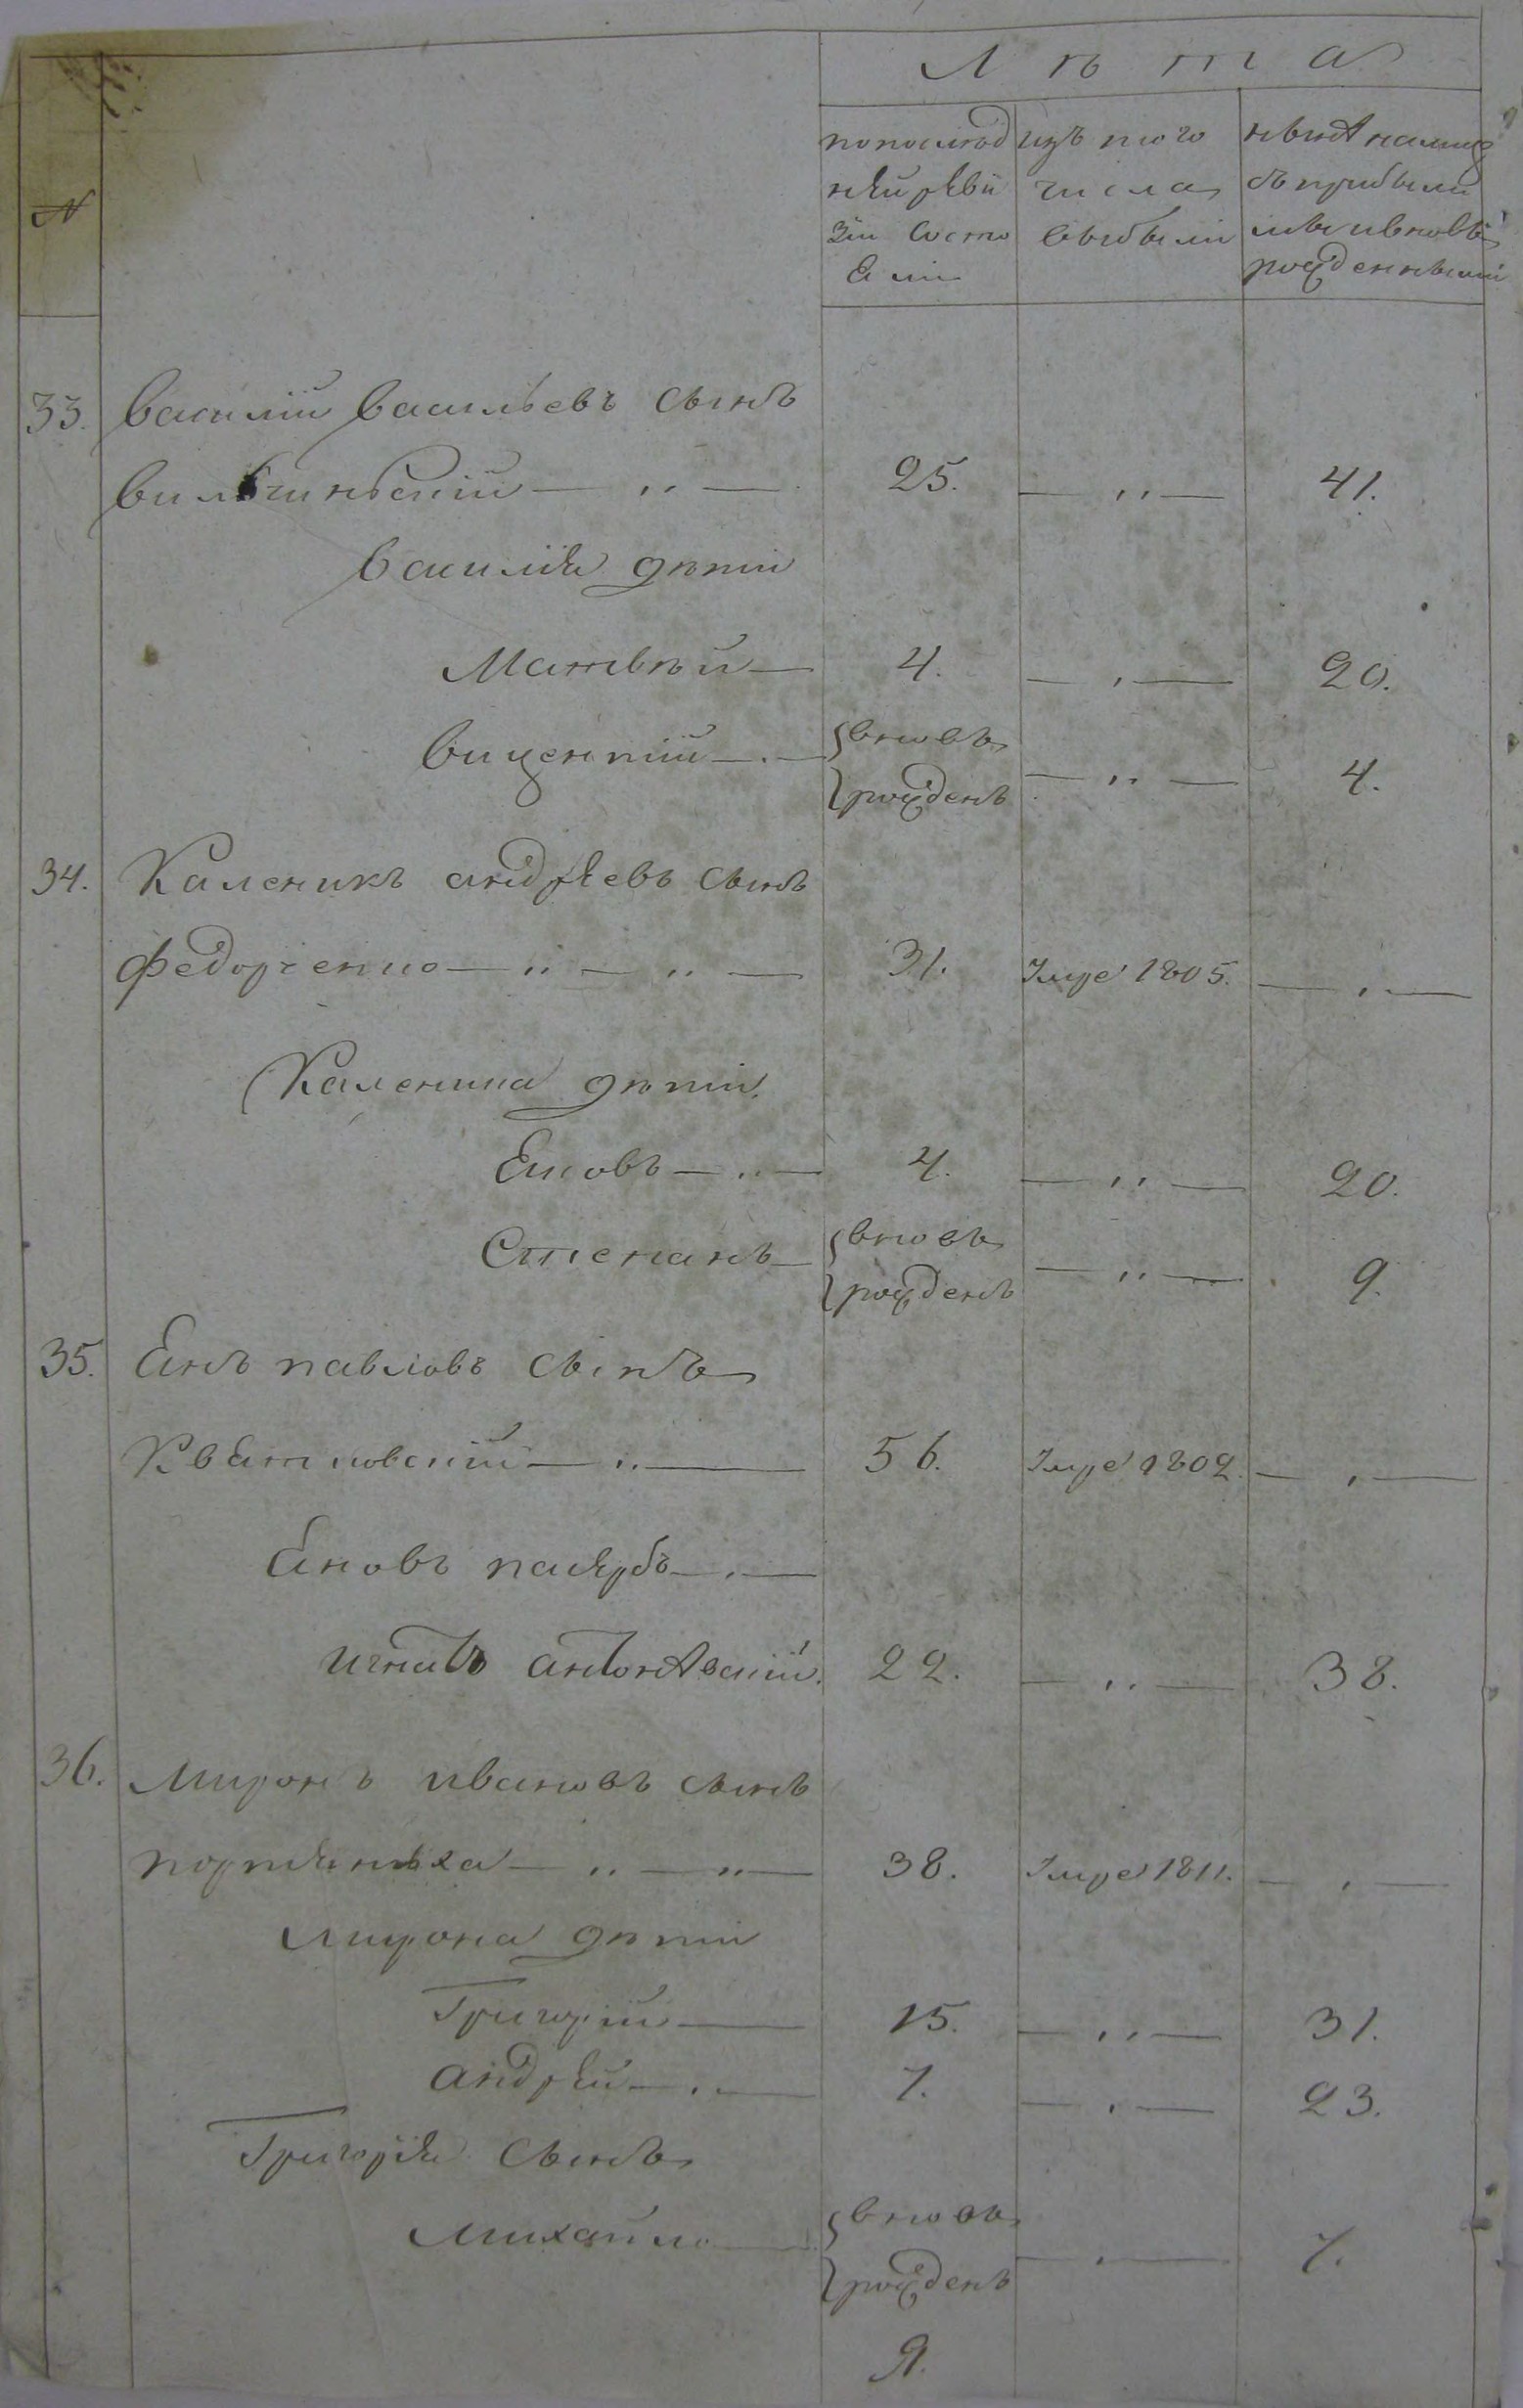 Лѣта
N
попослѣд
нѣй рѣви
зіи состо
Яли
изъ того
числа
выбыли
нынѣ на лицо
съ прибылы
ми и вновь
рожденными
33. Василій Васильевъ сынъ
25. 41.
Василія дѣти
Матвѣй 4. 20.
Вицентій вновь
рожденъ 4.
34. Каленикъ андрѣевъ сынъ
Федорченко 31. Умре 1805.
Каленика дѣти.
Яковъ 4. 20.
Степанъ вновь
рожденъ 9.
35. Янъ павловъ сынъ
Квятковскій 56. Умре 1802.
Яновъ пасѣрбъ
игнатъ антонѣвскій. 22. 38.
36. Миронъ ивановъ сынъ
портянъха 38. Умре 1811.
Мирона дѣти
Григорій 15. 31.
андрѣй 7. 23.
Григорія сынъ
Михайло вновь
рожденъ 7.
Я.